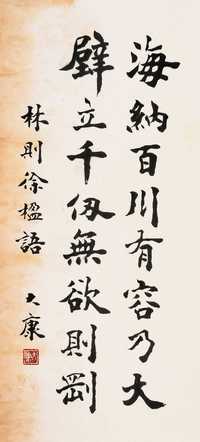 海納百川有容乃大
壁立千仭無欲則剛
林則徐楹語
大康